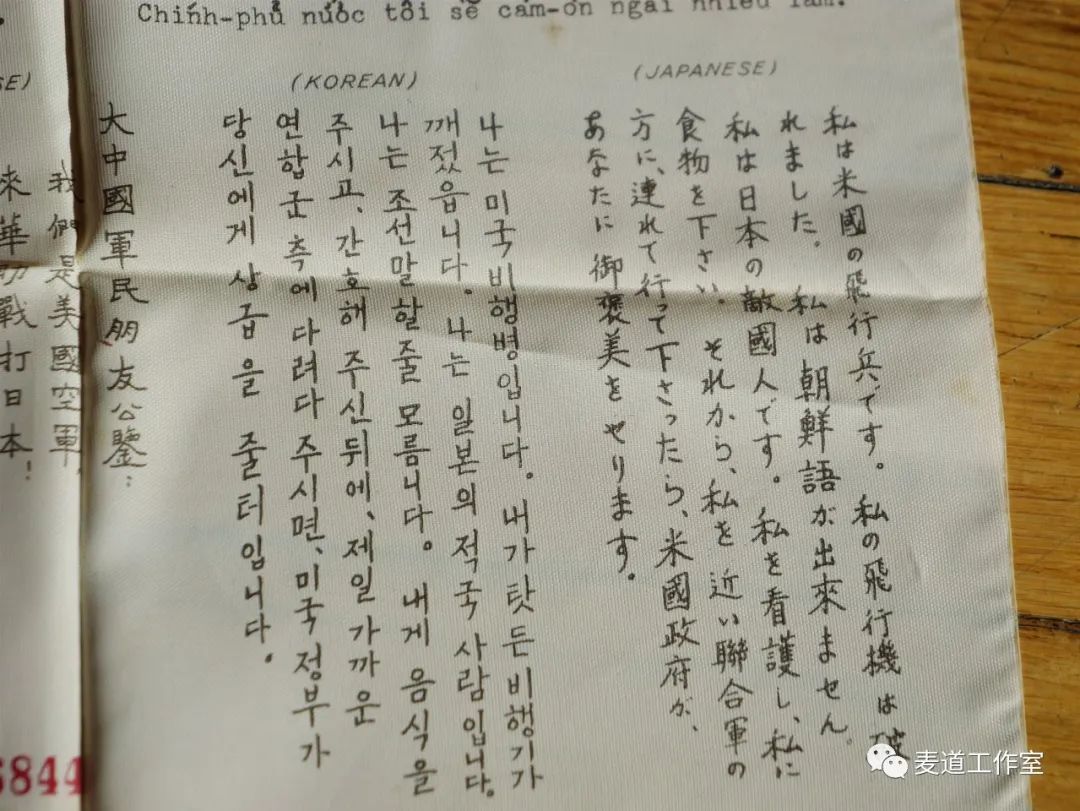 Chính-phủ nước tôi sẽ cảm-ơn ngài nhiều lắm.
(JAPANESE)
私は米國の飛行兵です。私の飛行機は破
れました。私は朝鮮語が出來ません。
私は日本の敵國人です。私を看護し、私に
食物を下さい。それから、私を近い聯合軍の
方に、連れて行って下さったら、米國政府が、
あなたに御褒美をやります。
(KOREAN)
나는 미국비행병입니다. 내가 탓든 비행기가
깨젔읍니다. 나는 일본의 적국 사람입니다.
나는 조선말 할줄 모릅니다. 내게 음식을
주시고, 간호해 주신뒤에, 제일 가까운
연합군 측에 다려다 주시면, 미국 정부가
당신에게 상급을 줄터입니다.
SE)
大中國軍民朋友公鑒:
我們是美國空軍,
來華助戰打日本!
6844
麦道工作室